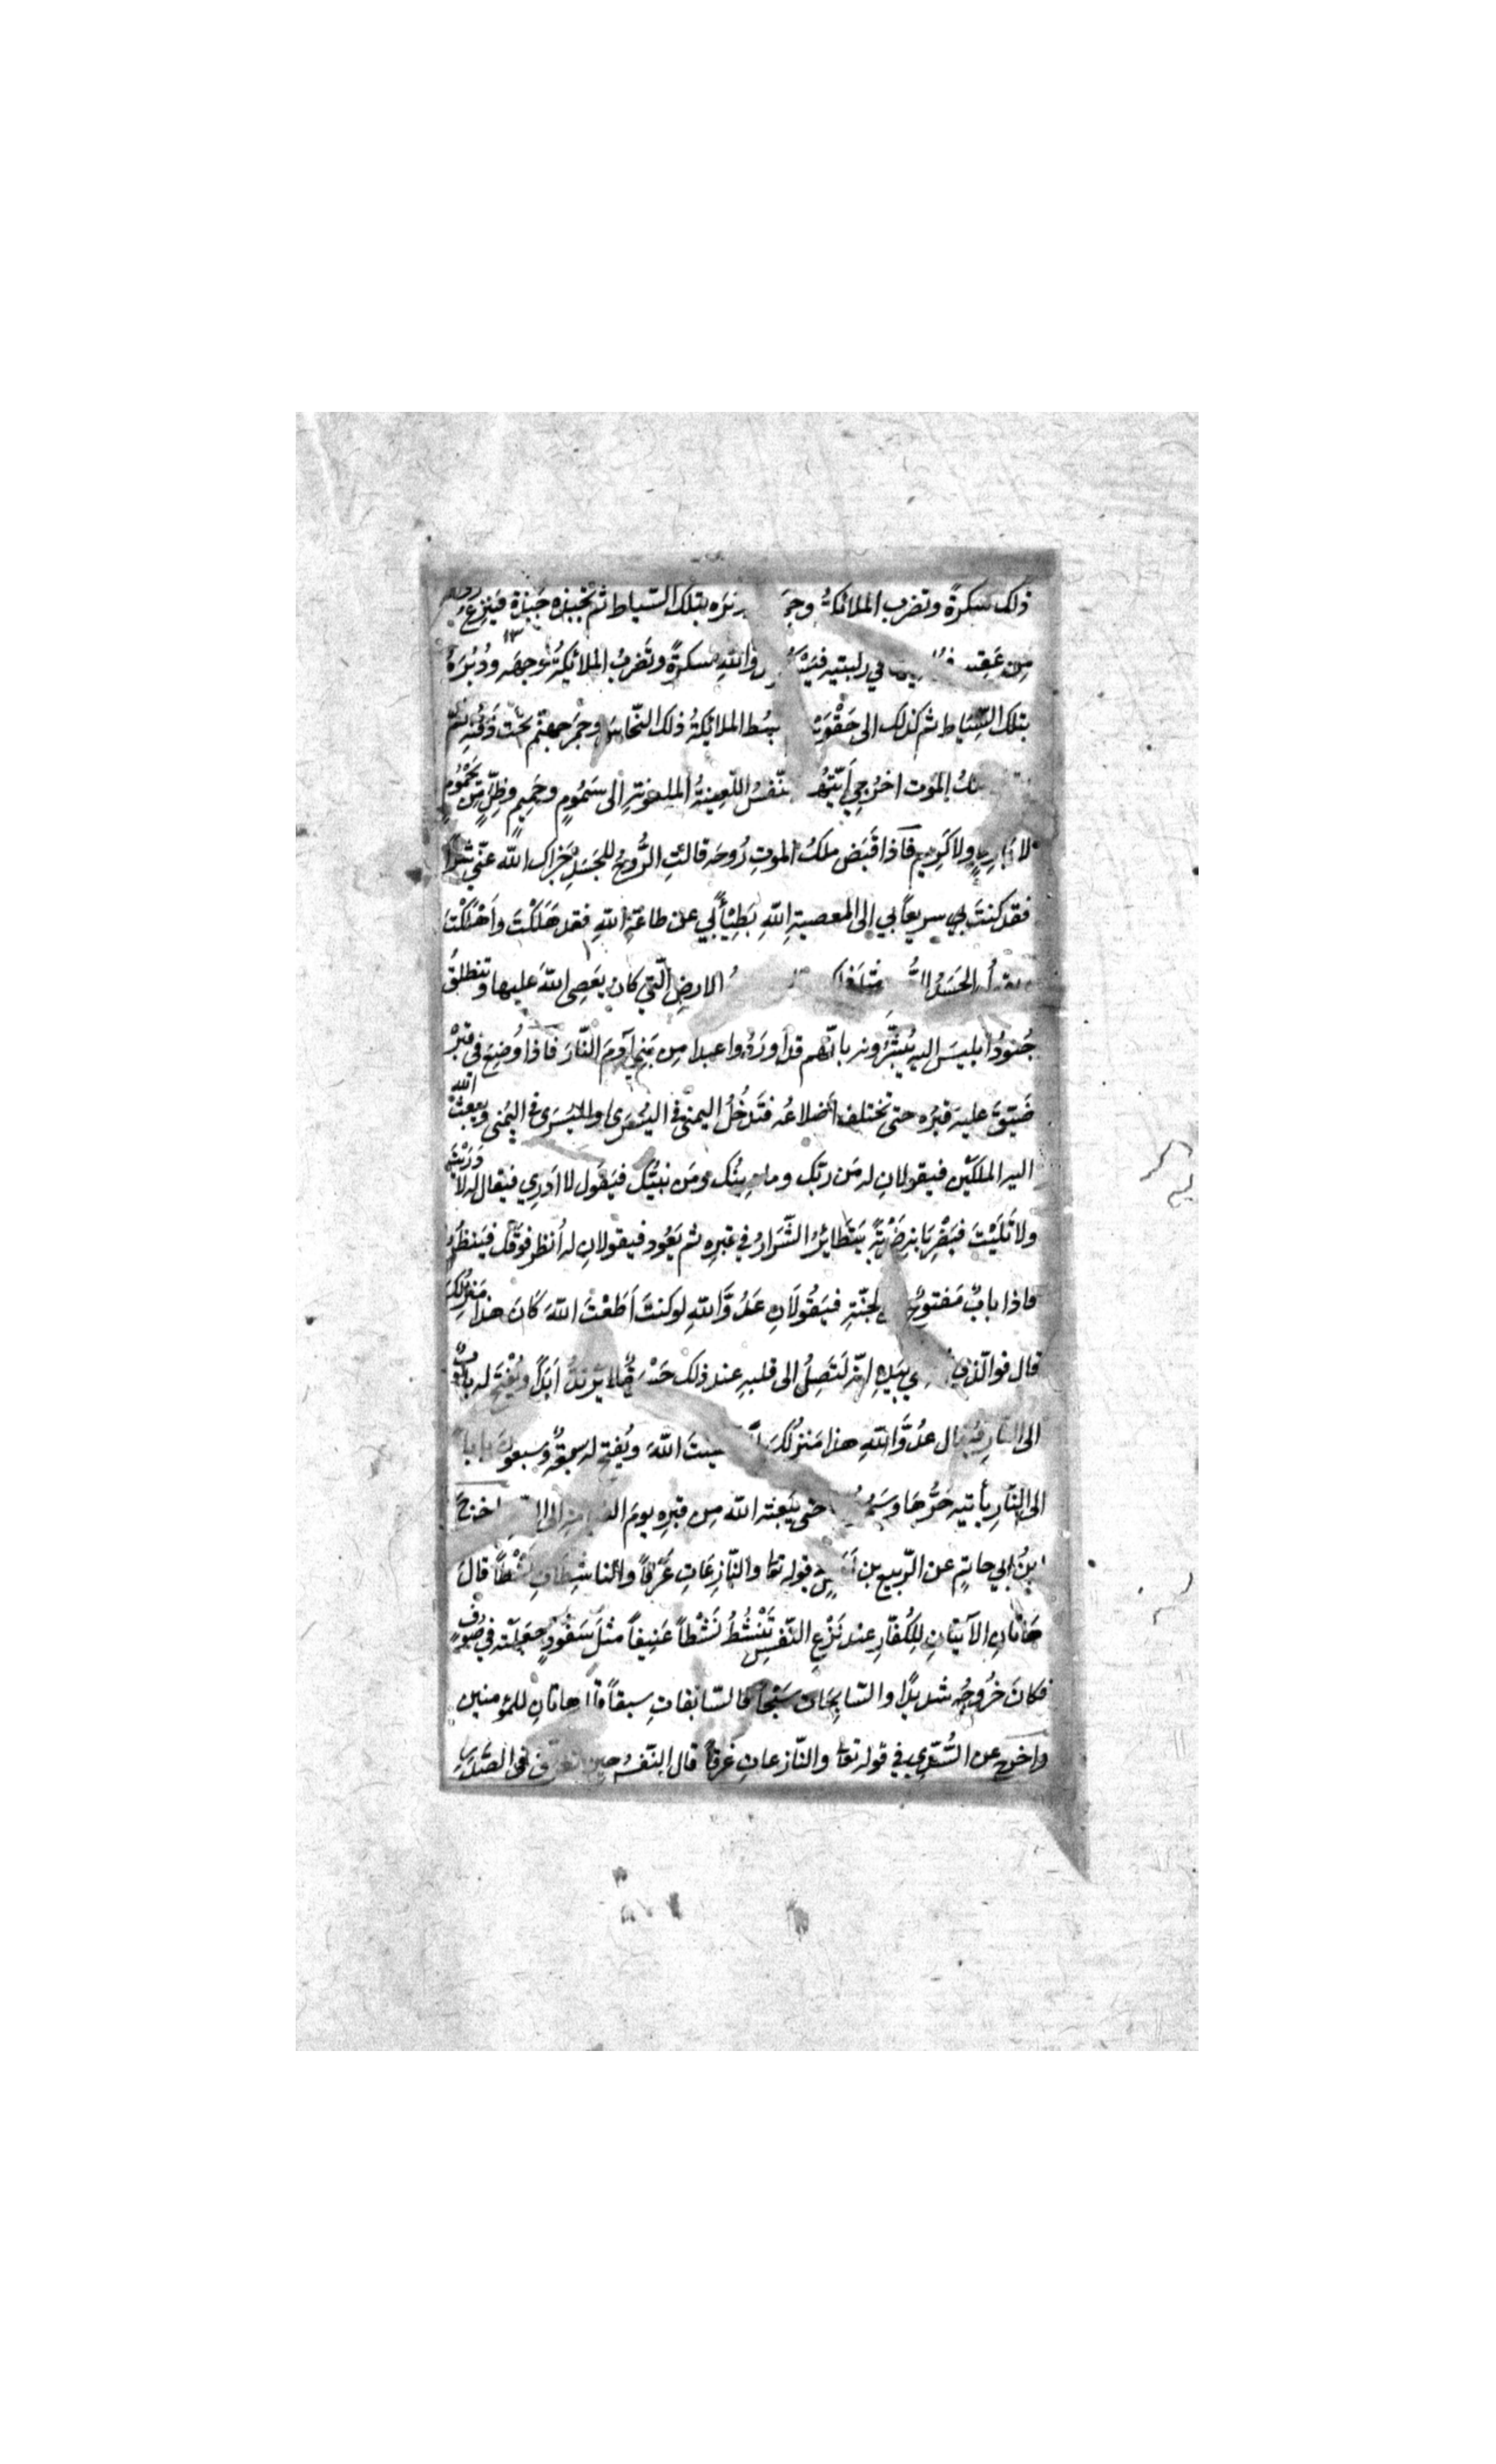 ذلك سكرةً وتضرب الملائكةُ وجه ودبره بتلك السّياط ثم تجبذه جبذة فينزع روحه
مِن عَقِبـ في ركبتيه فيسكر والله سكرةً وتَضربُ الملائكةُ وجهَه ودُبُرَهُ
بتلك السِّيَاط ثم كذلك الى حَقْوَيْه يبسُط الملائكةُ ذلك النّحاسَ وجَمرَ جهنّم تحت ذَقَنِه ثم
ملكُ الموت اخرُجي أيّتها النّفسُ اللّعينةُ الملعونة الى سَمُومٍ وحَمِيمٍ وظِلٍّ مِن يَحْمُومٍ
لا بارِدٍ ولا كَرِيمٍ فاذا قَبَض ملكُ الموتِ رُوحَه قالتِ الرُّوحُ للجَسَدِ جَزاك الله عنّي شرًّا
فقد كنتَ بي سريعاً بي الى المعصيةِ اللّهِ بَطِيْأً بي عن طاعةِ اللّهِ فقد هَلَكْتَ واَهْلَكْتَ
الجَسَدُ مثلَ ذلك الارضِ الّتي كان يَعصِي اللّهَ عليها وتنطلقُ
جُنودُ ابليسَ اليه يُبَشِّرُونه باَنّهم قد اَورَدُوا عبدا مِن بَنِي آدمَ النّارَ فاذا وُضِعَ في قَبْرِه
ضَيّقَ عليه قبرُه حتى تختلف اَضلاعُه فتَدخُلُ اليمنى في اليُسرَى واليُسرَى في اليُمنى ويبعثُ الله
اليه الملَكَيْن فيقولانِ له مَن ربُّك وما دِينُك ومَن نبيُّك فيَقول لا ادري فيقال له لا دَرَيْتَ
ولا تَلَيْتَ فيَضْرِبَانِه ضَرْبَةً يَتَطايَرُ الشّرارُ في قبرِه ثم يَعُود فيقولانِ له اُنظر فوقَك فيَنظُرُ
فاذا بابٌ مَفتوحٌ الجنّةِ فيَقُولَانِ عَدُوَّ اللّهِ لو كنتَ اَطَعْتَ اللّهَ كَانَ هذا مَنزِلُكَ
قال فوالّذي نفسي بيَدِهِ انّه لَتَصِلُ الى قلبِه عند ذلك حَسْرَةٌ لا تَرتدُّ اَبَدًا ويُفْتَح له بابٌ
الى النّارِ فيُقال عدُوَّ اللّهِ هذا مَنزلُكَ لمّا عصيتَ اللّهَ ويُفتح له سبعةٌ وسبعونَ بابا
الى النّارِ يأتيه حَرُّهَا وسَمُومُها حتى يَبعثه اللّه مِن قبرِه يومَ القيامة الى النّار اخرَجَ
ابنُ ابي حاتمٍ عن الرّبيع بن أَنَسٍ في قوله تعا والنّازِعَاتِ غَرْقاً والناشِطَاتِ نَشْطاً قالَ
هَاتانِ الآيتانِ لِلكُفّارِ عند نَزْعِ النّفسِ تَنْشُطُ نَشْطاً عَنِيفاً مثلَ سَفُّودٍ جَعَلْتَه في صُوفٍ
فكانَ خُرُوجُه شديدًا والسّابِحَات سَبْحاً فالسّابقاتِ سبقاً قال هاتانِ للمؤمنين
واَخرَج عن السُّدّيِّ في قوله تعا والنّازعاتِ غرقاً قال النّفسُ حين تَغرَق في الصَّدْرِ